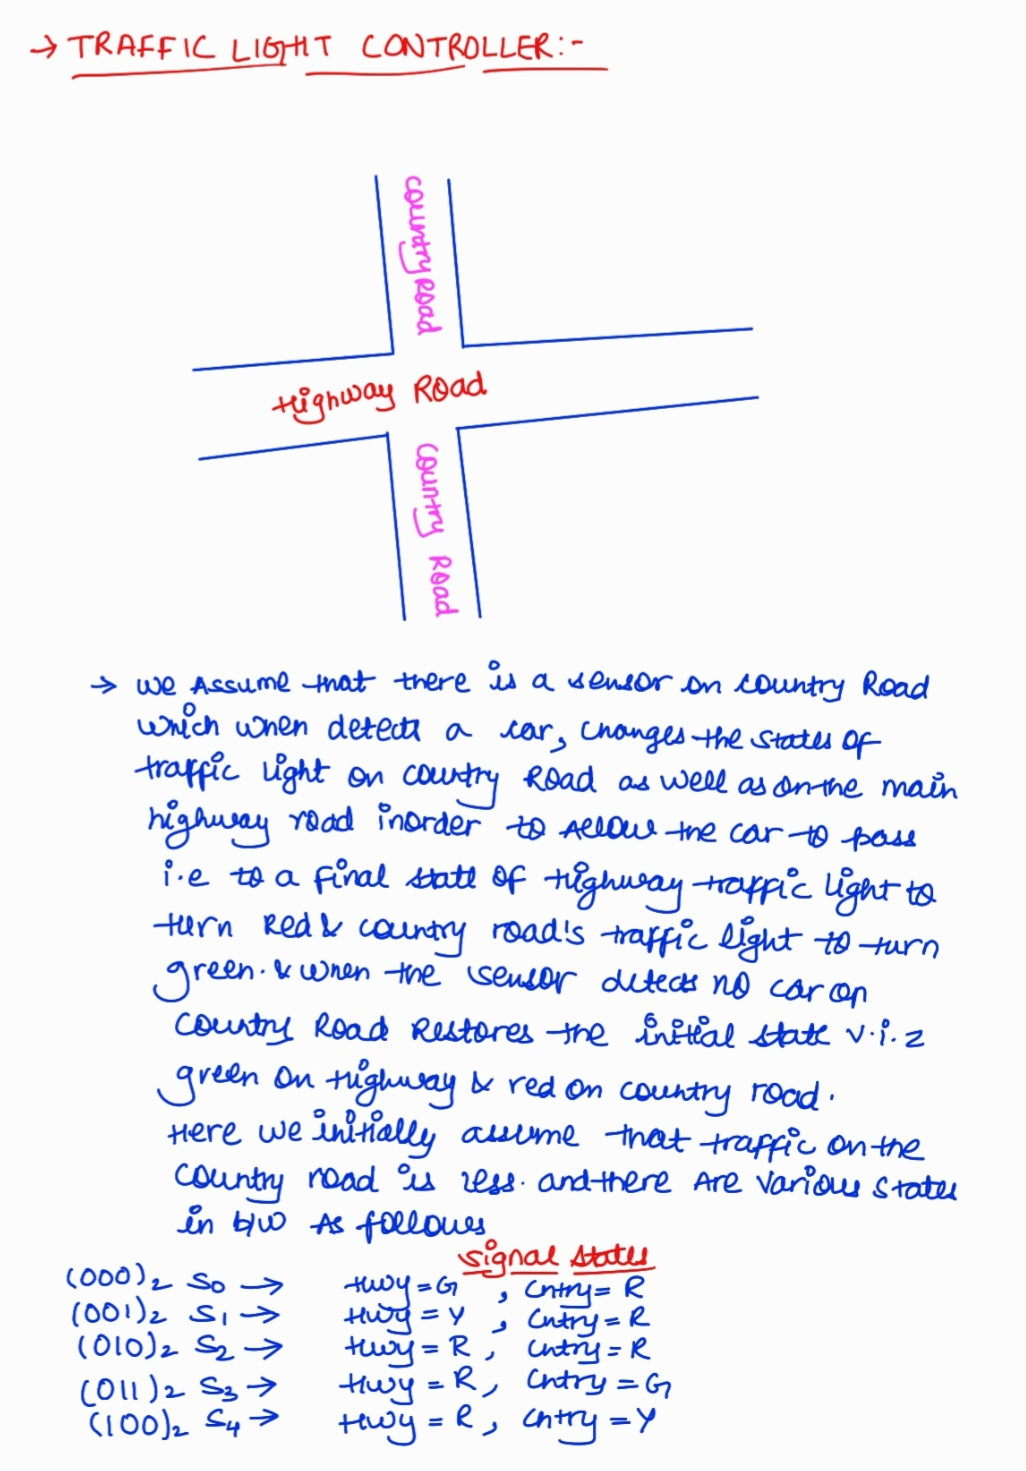 → TRAFFIC LIGHT CONTROLLER:-
Country Road
Highway Road
Country Road
→ We Assume that there is a sensor on country Road
which when detects a car, changes the states of
traffic light on country Road as well as on the main
highway road inorder to Allow the car to pass
i.e to a final state of Highway traffic light to
turn Red & country road's traffic light to turn
green. & when the sensor detects no car on
country Road Restores the initial state v.i.z
green on Highway & red on country road.
Here we initially assume that traffic on the
country road is less. and there Are various states
in b/w As follows
Signal States
(000)₂ S₀ → Hwy = G , Cntry = R
(001)₂ S₁ → Hwy = Y , Cntry = R
(010)₂ S₂ → Hwy = R , Cntry = R
(011)₂ S₃ → Hwy = R , Cntry = G
(100)₂ S₄ → Hwy = R , Cntry = Y